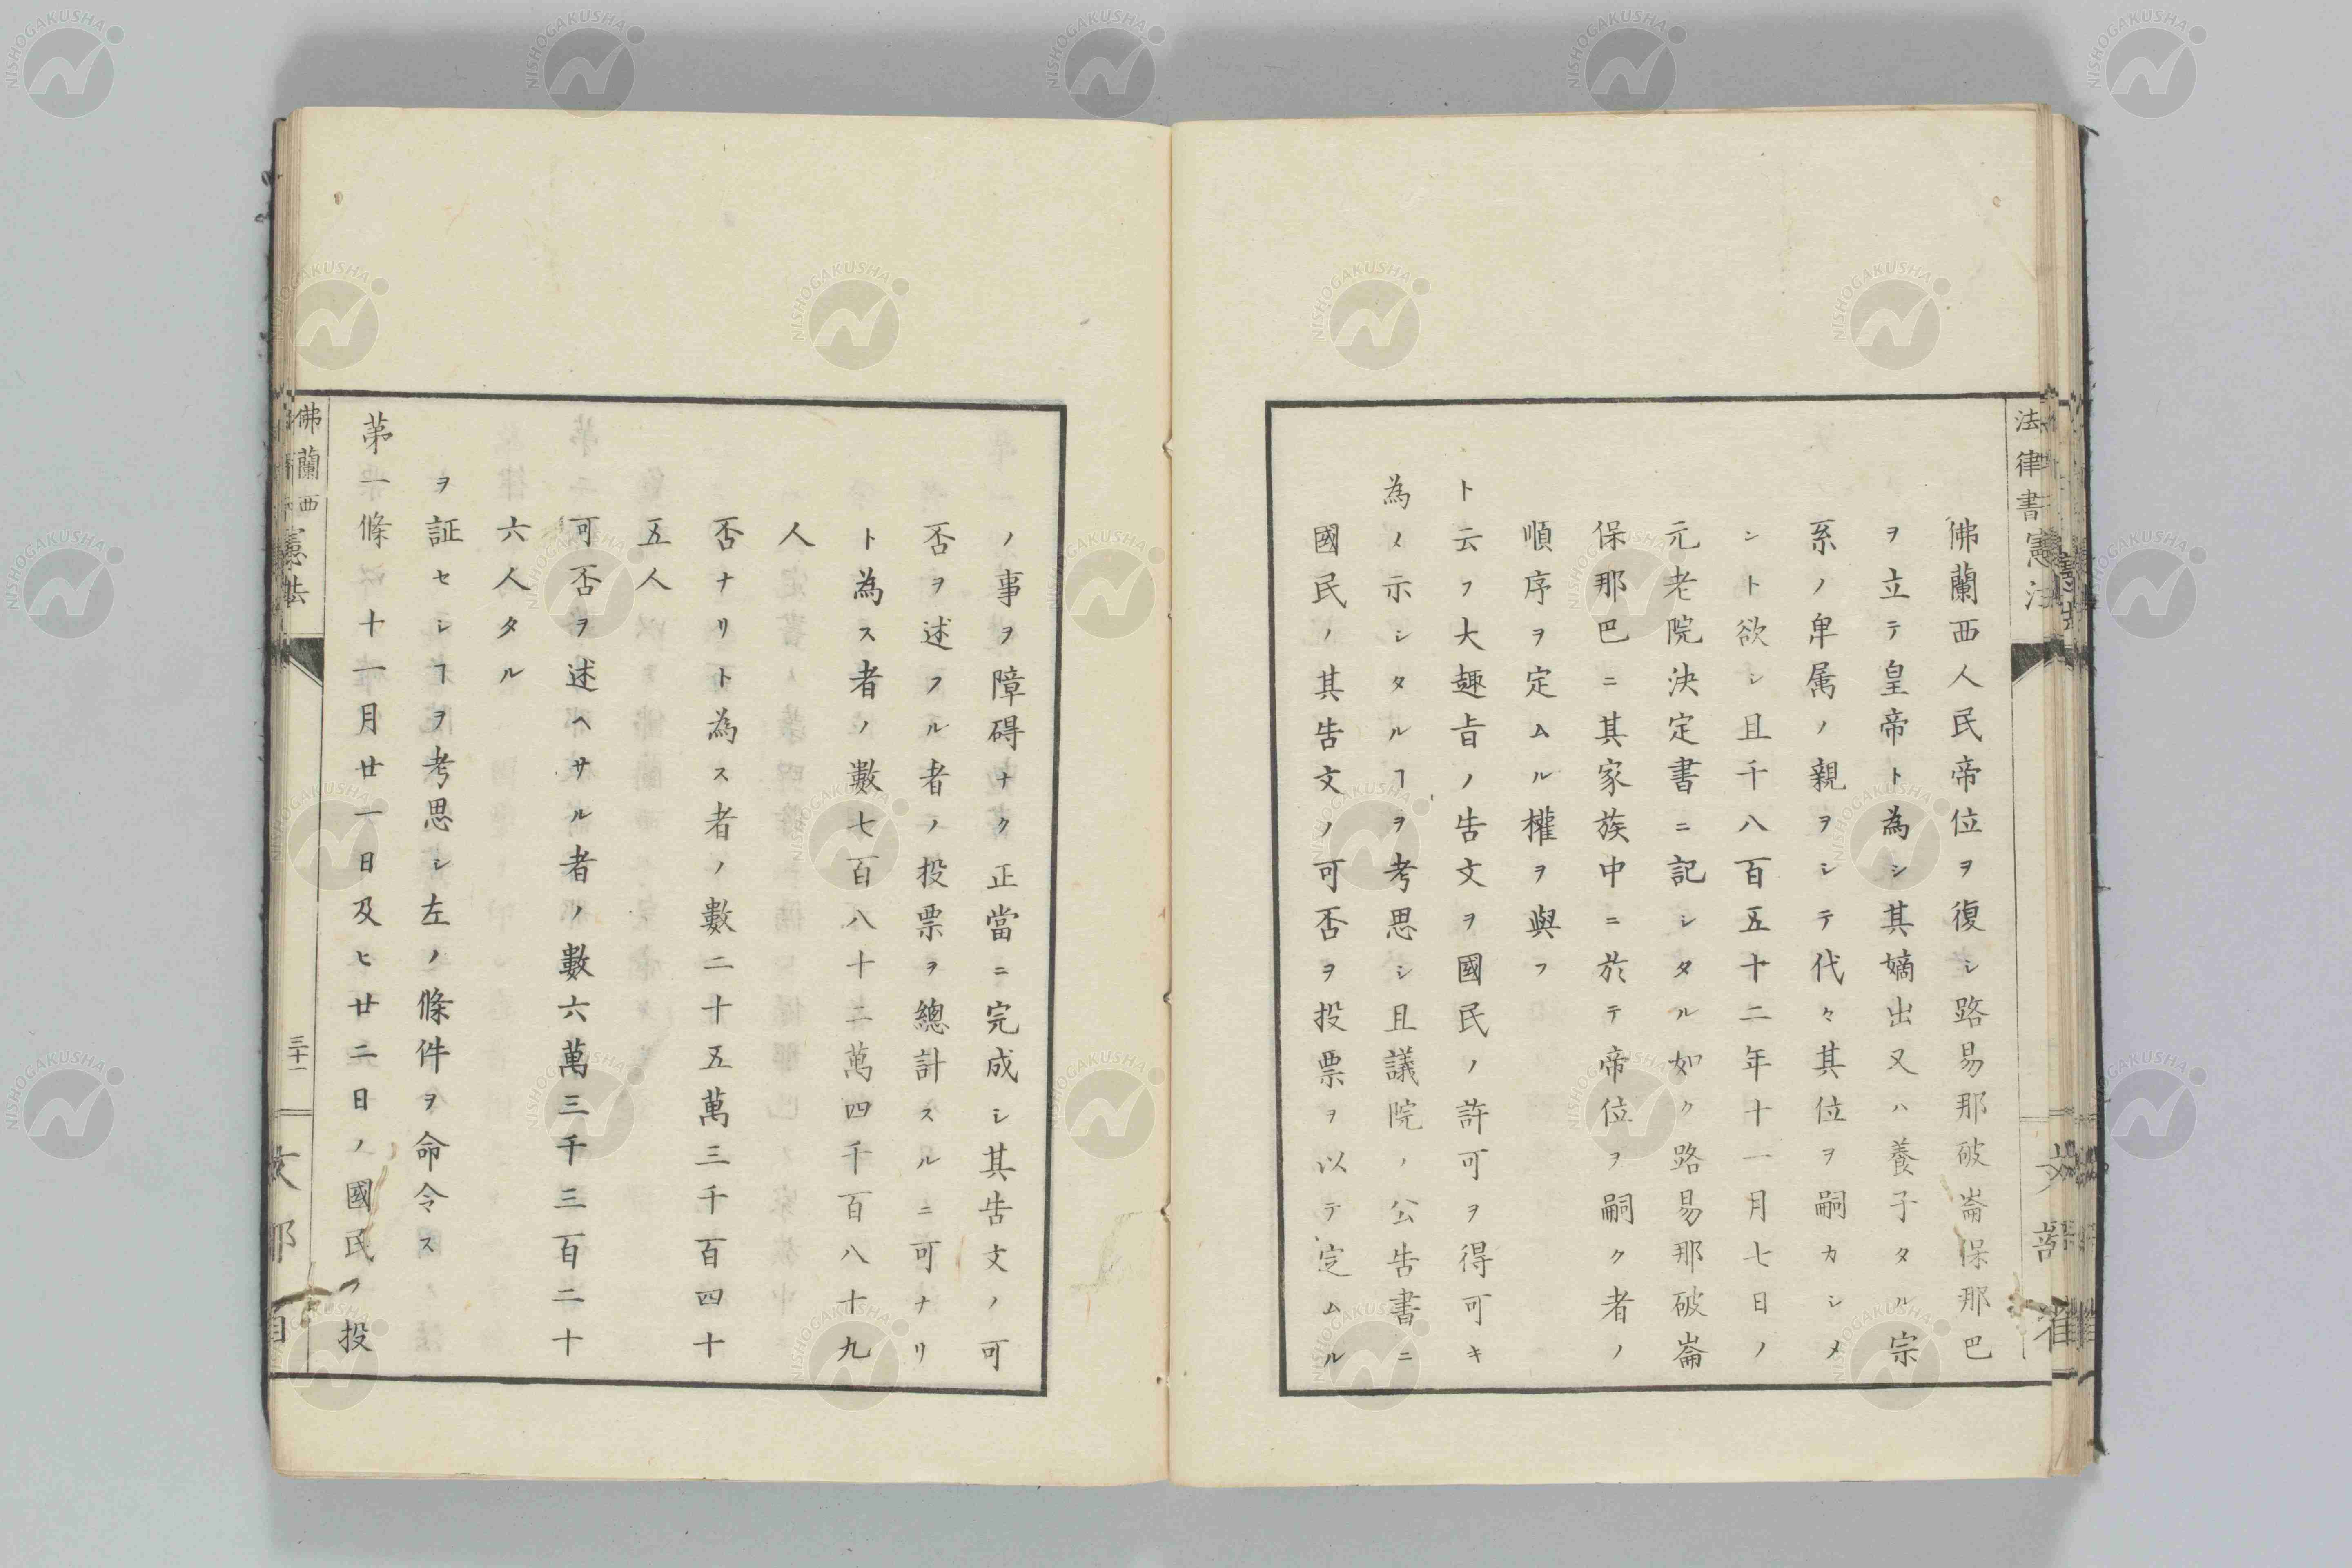 法律書憲法
佛蘭西人民帝位ヲ復シ路易那破崙保那巴
ヲ立テ皇帝ト為シ其嫡出又ハ養子タル宗
系ノ卑属ノ親ヲシテ代々其位ヲ嗣カシメ
ント欲シ且千八百五十二年十一月七日ノ
元老院決定書ニ記シタル如ク路易那破崙
保那巴ニ其家族中ニ於テ帝位ヲ嗣ク者ノ
順序ヲ定ムル權ヲ與フ
ト云フ大趣旨ノ告文ヲ國民ノ許可ヲ得可キ
為ノ示シタルヿヲ考思シ且議院ノ公告書ニ
國民ノ其告文ノ可否ヲ投票ヲ以テ定ムル
ノ事ヲ障碍ナク正當ニ完成シ其告文ノ可
否ヲ述フル者ノ投票ヲ總計スルニ可ナリ
ト為ス者ノ數七百八十二萬四千百八十九
人
否ナリト為ス者ノ數二十五萬三千百四十
五人
可否ヲ述ヘサル者ノ數六萬三千三百二十
六人タル
ヲ証セシヿヲ考思シ左ノ條件ヲ命令ス
第一條十一月廿一日及ヒ廿二日ノ國民ノ投
佛蘭西憲法
三十一
NISHOGAKUSHA